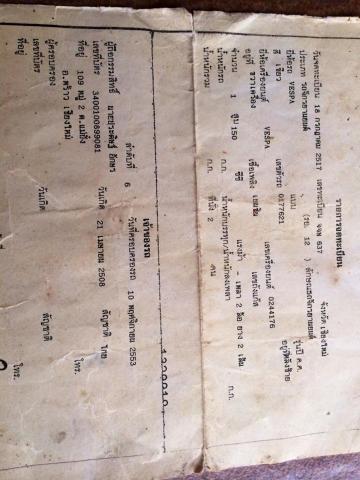 รายการจดทะเบียน
วันจดทะเบียน 18 กรกฎาคม 2517 เลขทะเบียน จจพ 637 จังหวัด เชียงใหม่
ประเภท รถจักรยานยนต์ (รย. 12 ) ลักษณะรถจักรยานยนต์
ยี่ห้อรถ VESPA แบบ รุ่นปี ค.ศ.
สี เขียว เลขตัวรถ 0177621 อยู่ที่
ยี่ห้อเครื่องยนต์ VESPA เลขเครื่องยนต์ 0244176
อยู่ที่ เชื้อเพลิง เบนซิน เลขถังแก๊ส
จำนวน 1 สูบ 150 ซีซี แรงม้า - เพลา 2 ล้อ ยาง 2 เส้น
น้ำหนักรถ ก.ก. น้ำหนักบรรทุก/น้ำหนักลงเพลา ก.ก.
น้ำหนักรวม ก.ก. ที่นั่ง 2 คน
เจ้าของรถ
ลำดับที่ 6 วันที่ครอบครองรถ 10 พฤศจิกายน 2553
ผู้ถือกรรมสิทธิ์ นายประสิทธิ์
เลขที่บัตร 3400100899081 วันเกิด 21 เมษายน 2508 สัญชาติ ไทย
ที่อยู่ 109 หมู่ 2 ต.แม่ปั๋ง โทร.
อ.พร้าว เชียงใหม่
ผู้ครอบครอง
เลขที่บัตร วันเกิด สัญชาติ
ที่อยู่ โทร.